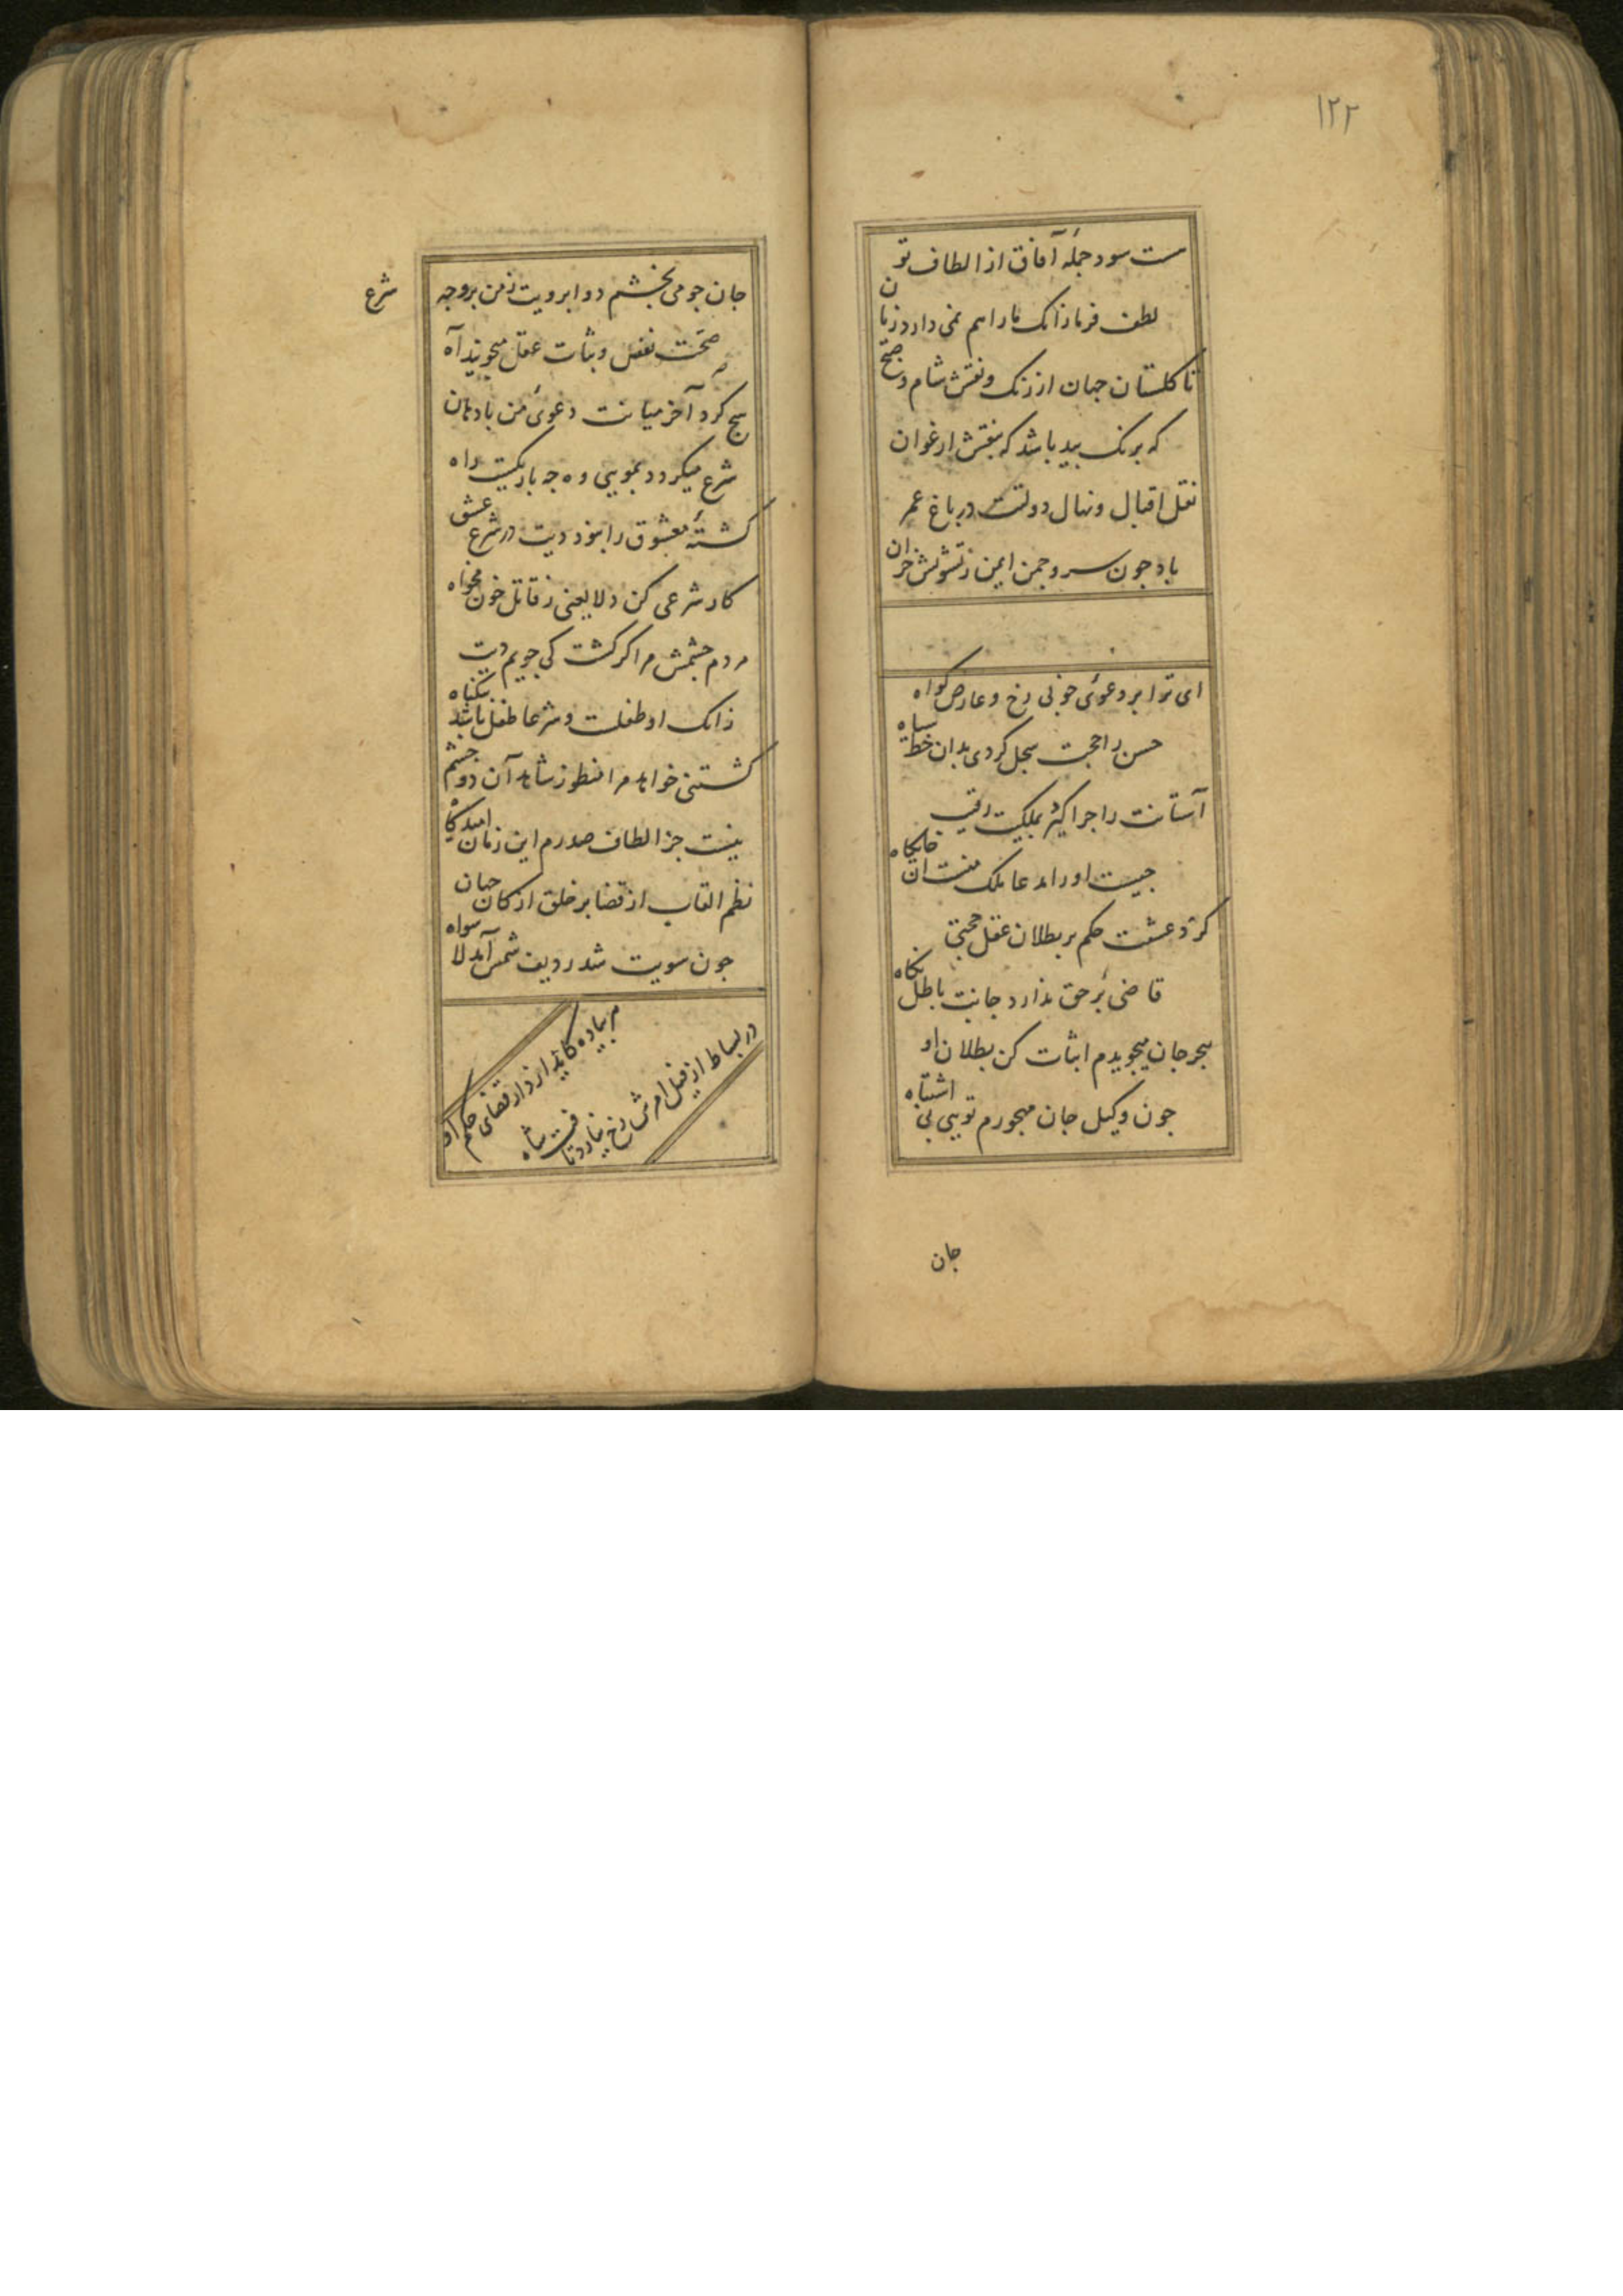 ۱۲۲
هست سود جملهٔ آفاق از الطاف تو
لطف فرما زانک ما را هم نمی دارد زیان
تا کلستان جهان از رنک و نقش شام و صبح
که برنک بید باشد که بنقش ارغوان
نخل اقبال و نهال دولتت در باغ عمر
باد جون سرو جمن ایمن ز تشویش خزان
ای ترا بر دعوئ خوبی رخ و عارض کواه
حسن را حجت سجل کردی بدان خط سیاه
آستانت را جرا کیرد بملکیت رقیب
جیست او را ادعا ملک منست آن جایکاه
کرد عشقت حکم بر بطلان عقل حجتی
قاضئ بر حق ندارد جانب باطل نکاه
هجر جان میجویدم اثبات کن بطلان او
جون وکیل جان مهجورم تویی بی اشتباه
جان
جان جو می بخشم دو ابرویت ز من بر وجه شرع
صحت نفس و ثبات عقل میجویند آه
هیچ کرد آخر میانت دعوئ من با دهان
شرع میکردد بمویی وه جه باریکست راه
کشتهٔ معشوق را نبود دیت در شرع عشق
کار شرعی کن دلا یعنی ز قاتل خون مخواه
مردم جشمش مرا کر کشت کی جویم دیت
زانک او طفلست و شرعا طفل باشد بیکناه
کشتنی خواهد مرا منظور شاهد آن دو جشم
نیست جز الطاف صدرم این زمان امیدکاه
نظم القاب از قضا بر خلق ارکان جهان
جون سویت شد ردیف شمس آمد لا سواه
هر پیاده کاید از دار قضای حکم او
در بساط از فیل امرش رخ نیارد تافت شاه